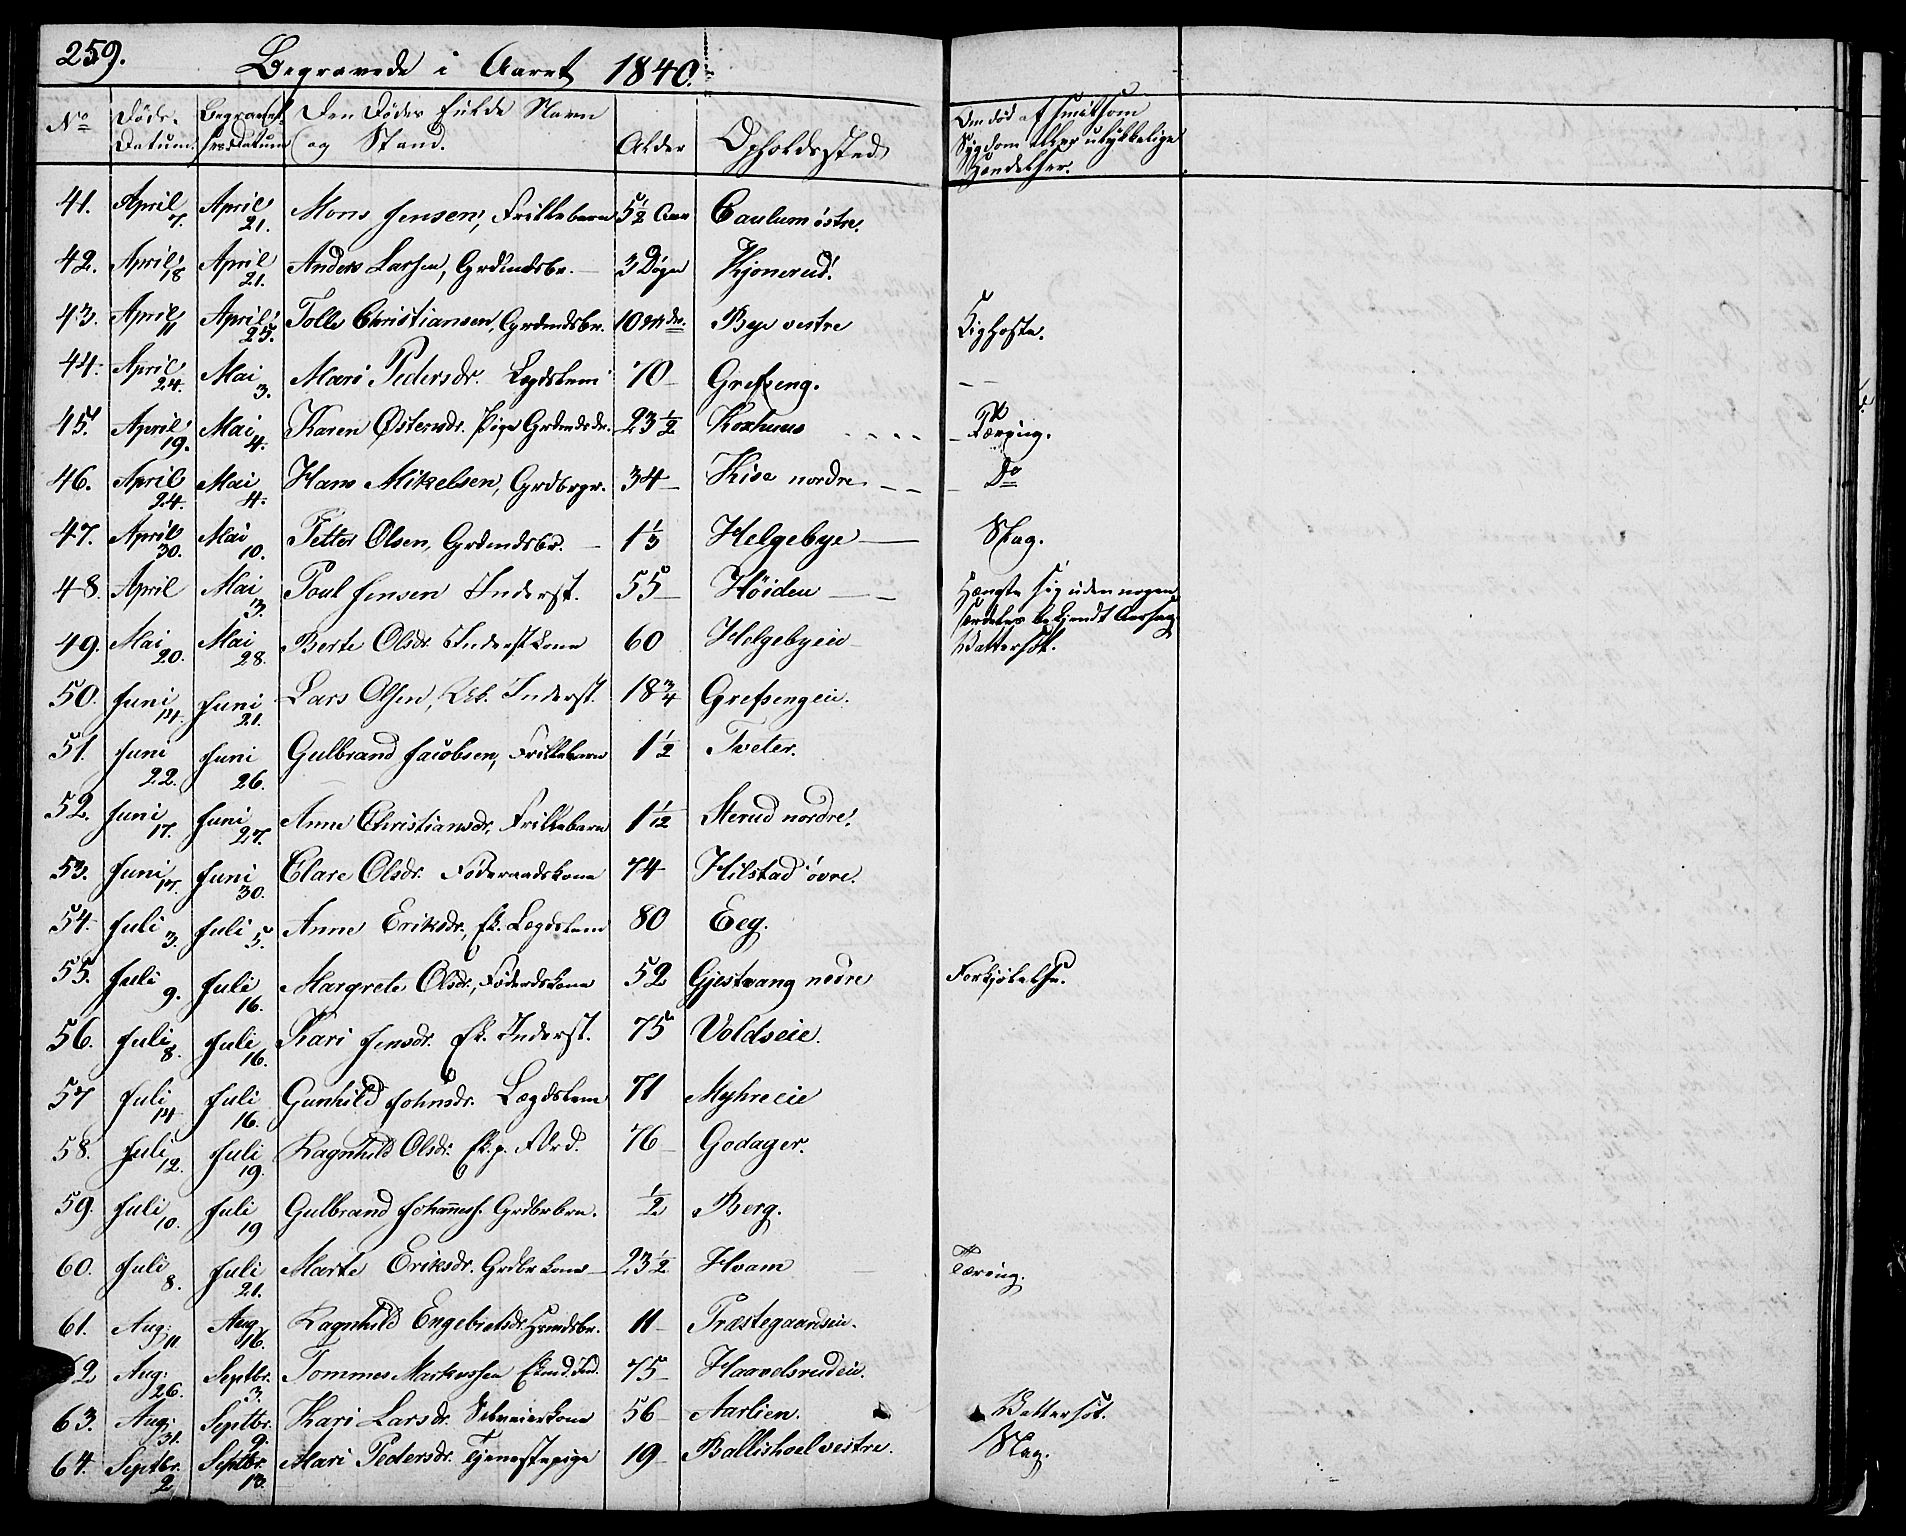 259. Begravede i Aaret 1840.
No Døds-Datum. Begravelses Datum Den Dødes fulde Navn og Stand. Alder Opholdssted Om død af smitsom Sygdom eller ulykkelige Hændelser.
41. April 7. April 21. Mons Jensen, Frillebarn 5 1/2 Aar Caulum østre.
42. April 18 April 21. Anders Larsen, Grdmdsbr. 3 Døgn Kjonerud.
43. April 11 April 25. Tolle Christiansen, Grdmdsbr. 10 Mdr. Bye vestre Kighoste.
44. April 24. Mai 3. Mari Pedersdr. Lægdslem 70 Grefseng.
45. April 19. Mai 4. Karen Østensdr. Pige Grdmdsdr. 23 1/2 Korhuus Tæring.
46. April 24. Mai 4. Hans Mikelsen, Grdbrgr. 34 Kise nordre Do
47. April 30. Mai 10. Petter Olsen, Grdmdsbr. 1 1/3 Helgebye Slag.
48. April Mai 3. Poul Jensen Inderst. 55 Høiden Hængte sig uden nogen særdeles bekjendt Aarsag.
49. Mai 20. Mai 28. Berte Olsdr. Inderstkone 60 Helgebyeie Vattersot.
50. Juni 14. Juni 21. Lars Olsen, Inderst. 18 3/4 Grefsengeie.
51. Juni 22. Juni 26. Gulbrand Jacobsen, Frillebarn 1 1/2 Tveter.
52. Juni 17. Juni 27. Anne Christiansdr. Frillebarn 1 1/12 Sterud nordre.
53. Juni 17. Juni 30. Clare Olsdr. Føderaadskone 74 Hilstad øvre.
54. Juli 3. Juli 5. Anne Eriksdr., Ek. Lægdslem 80 Eeg.
55. Juli 9. Juli 16. Margrete Olsdr., Føderdskone 52 Gjestvang nedre Forkjølelse.
56. Juli 8. Juli 16. Kari Jensdr. Ek. Inderst. 75 Voldseie.
57 Juli 14. Juli 16. Gunhild Johnsdr. Lægdslem 71 Myhreeie
58. Juli 12. Juli 19. Ragnhild Olsdr. Ek. p. Fdrd. 76 Godager.
59. Juli 10. Juli 19 Gulbrand Johanness. Grdbrbrn. 1/2 Berg.
60. Juli 8. Juli 21. Marte Eriksdr. Grdbrkone 23 1/2 Hvam Tæring.
61. Aug: 11. Aug 16. Ragnhild Engebretsdr. Husmdsbr. 11 Præstegaardseie.
62 Aug: 26. Septbr. 3. Tommes Markussen Ekmd. Ind. 75 Haavelsrudeie.
63. Aug: 31. Septbr. 9. Kari Larsdr. Selveierkone 56 Aarlien. Vattersot.
64. Septbr. 2 Septbr. 13. Mari Pedersdr. Tjenestepige 19 Ballishoel vestre. Slag.